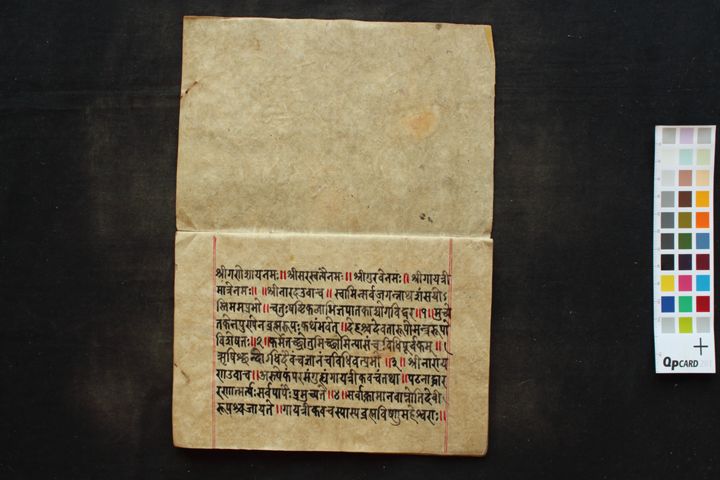 श्रीगणेशायनमः॥श्रीसरस्वत्यैनमः॥श्रीगुरवेनमः॥श्रीगायत्री
मात्रेनमः॥॥श्रीनारदउवाच॥स्वामिन्सर्वजगन्नाथसंसयोऽ
स्तिममप्रभो॥चतुःषष्ठिकलाभिज्ञपातकाद्योगविद्वर॥१॥मुच्य
तेकेनपुण्येनब्रह्मरूपःकथंभवेत्॥देहश्चदेवतारूपोमन्त्ररूपो
विशेषतः॥२॥कर्मतच्छ्रोतुमिच्छामिन्यासंचविधिपूर्वकम्॥
ऋषिश्छन्दोऽधिदैवंचज्ञानंचविधिवत्प्रभो॥३॥श्रीनाराय
णउवाच॥अस्त्येकंपरमंगुह्यंगायत्रीकवचंतथा॥पठनाद्धार
रणान्मर्त्यःसर्वपापैःप्रमुच्यते॥४॥सर्वान्कामानवाप्नोतिदेवी
रूपश्चजायते॥गायत्रीकवचस्यास्यब्रह्मविष्णुमहेश्वराः॥
QPCARD 201